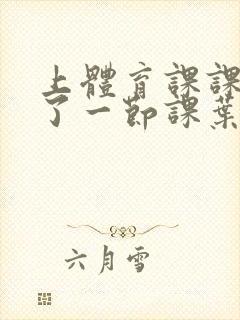 上體育課課
了一節課葉
六月雪